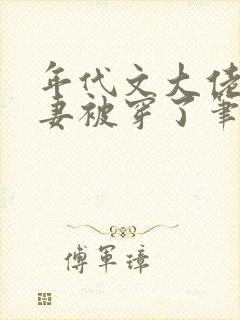 年代文大佬
妻被穿了筆
傅軍璋